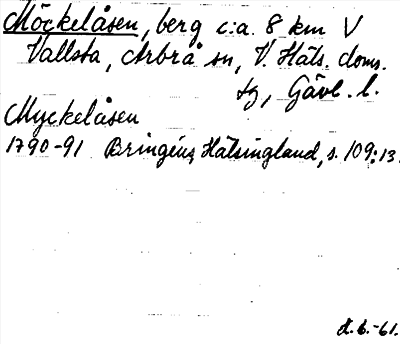 Möckelåsen, berg c:a. 8 km V
Vallsta, Arbrå sn, V. Häls. doms.
tg, Gävl. l.
Myckelåsen
1790-91 Bringéus Hälsingland, s. 109:13.
d. 6.-61.